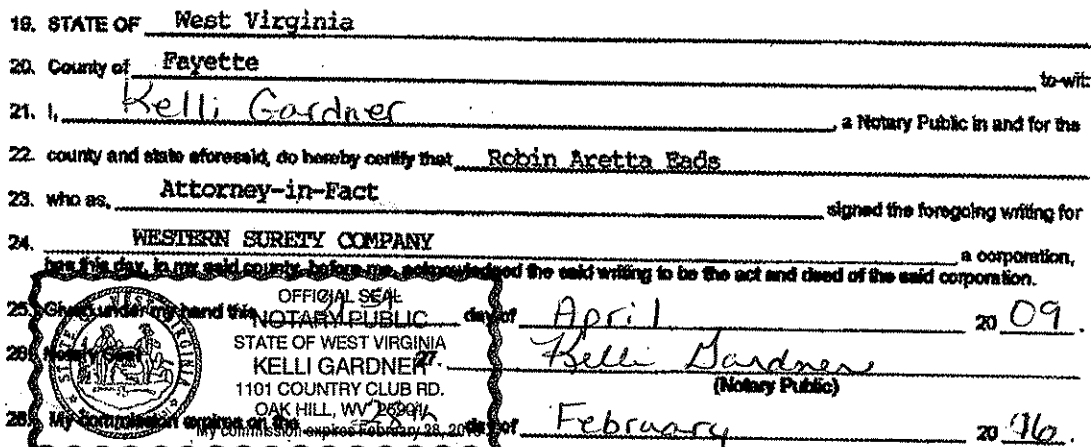 19. STATE OF West Virginia
20. County of Fayette to-wit:
21. I, Kelli Gardner, a Notary Public in and for the
22. county and state aforesaid, do hereby certify that Robin Aretta Eads
23. who as, Attorney-in-Fact signed the foregoing writing for
24. WESTERN SURETY COMPANY a corporation,
has this day, in my said county, before me, acknowledged the said writing to be the act and deed of the said corporation.
25. Given under my hand this day of April 20 09.
26. Notary Seal 27. Kelli Gardner
(Notary Public)
28. My commission expires on the 28 day of February 20 16.
STATE OF WEST VIRGINIA
OFFICIAL SEAL
NOTARY PUBLIC
STATE OF WEST VIRGINIA
KELLI GARDNER
1101 COUNTRY CLUB RD.
OAK HILL, WV 25901
My commission expires February 28, 20